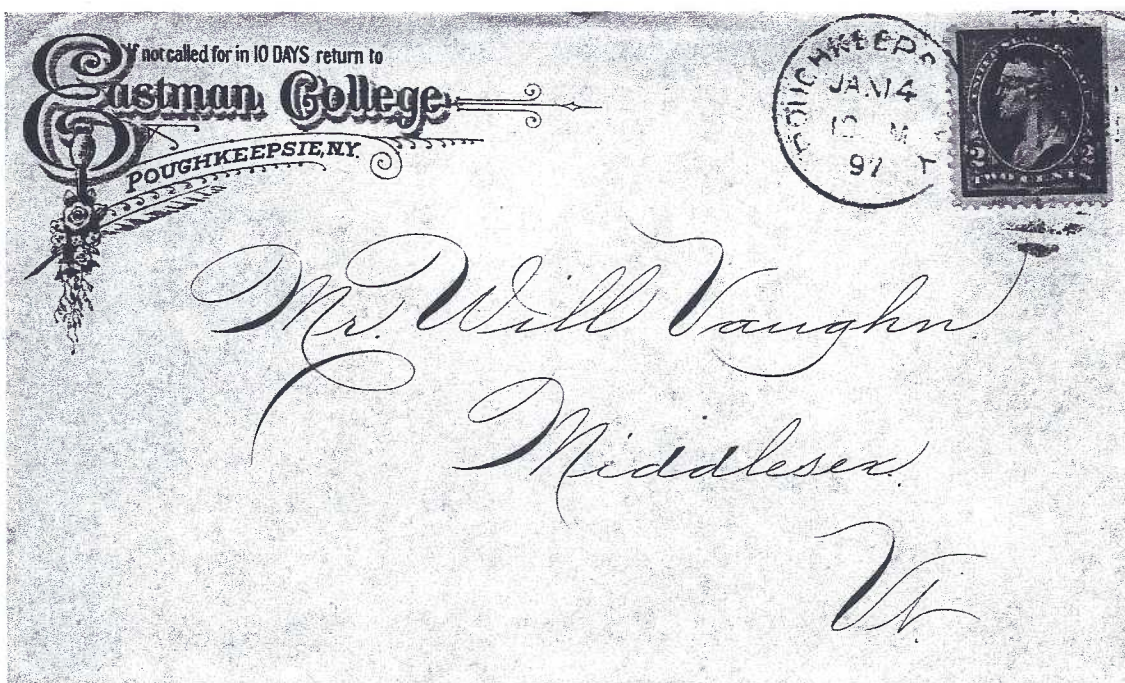 If not called for in 10 DAYS return to
Eastman College
POUGHKEEPSIE, N.Y.
POUGHKEEPS
JAN 4
M
97
TWO CENTS
Mr. Will Vaughn
Middlesex.
Vt.